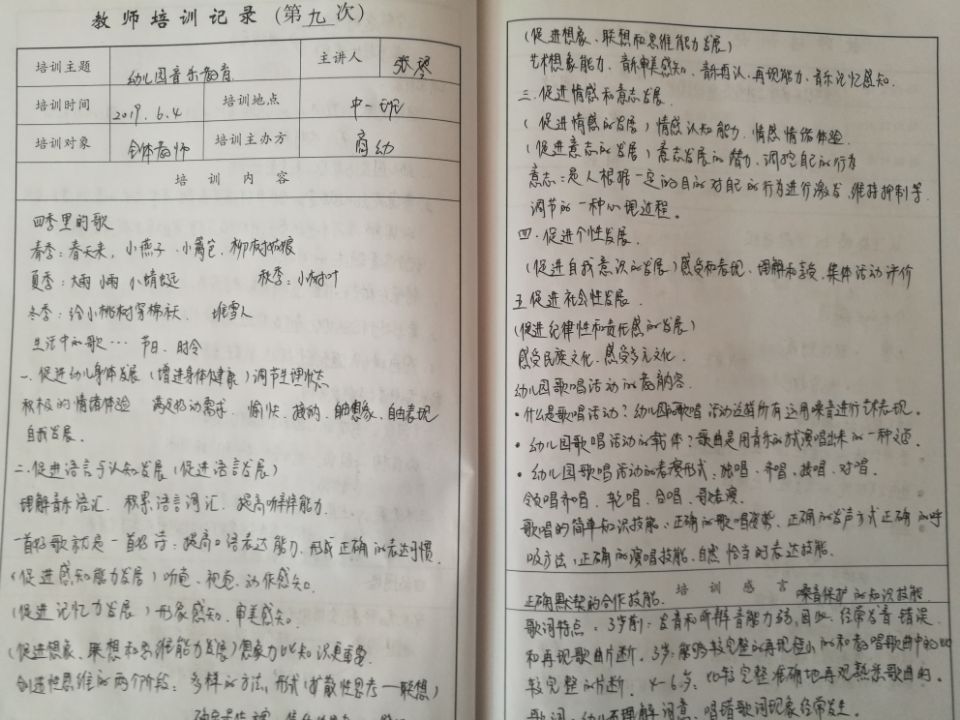 教师培训记录（第九次）
培训主题 幼儿园音乐教育 主讲人 张
培训时间 2019.6.4 培训地点 中一班
培训对象 全体教师 培训主办方 幼
培训内容
四季里的歌
春季：春天来，小燕子、小篱笆、柳树姑娘
夏季：大雨小雨 小蜻蜓 秋季：小树叶
冬季：给小桃树穿棉袄 堆雪人
生活中的歌… 节日、时令
一、促进幼儿身体发展（增进身体健康）调节生理状态
积极的情绪体验 满足极动需求 愉快、接纳、自由想象、自由表现
自我发展.
二、促进语言与认知发展（促进语言发展）
理解音乐语汇、积累语言词汇、提高听辨能力.
一首好歌就是一首好诗：提高口语表达能力，形成正确的表达习惯.
（促进感知能力发展）听觉、视觉、动作感知.
（促进记忆力发展）形象感知、审美感知.
（促进想象、联想和思维能力发展）想象力比知识更重要
创造性思维的两个阶段：多样的方法，形式（扩散性思考——联想）
（促进想象、联想和思维能力发展）
艺术想象能力、音乐审美感知、音乐再认、再现能力、音乐记忆感知.
三.促进情感和意志发展.
（促进情感的发展）情感认知能力，情感情绪体验.
（促进意志的发展）意志发展的潜力，调控自己的行为
意志：是人根据一定的目的对自己的行为进行激发、维持抑制等
调节的一种心理过程。
四.促进个性发展.
（促进自我意识的发展）感受和表现、理解和享受、集体活动评价
五.促进社会性发展.
（促进纪律性和责任感的发展）
感受民族文化、感受多元文化.
幼儿园歌唱活动的教育内容.
·什么是歌唱活动？幼儿园的歌唱活动泛指所有运用嗓音进行艺术表现.
·幼儿园歌唱活动的载体？歌曲是用音乐的方式演唱出来的一种文.
·幼儿园歌唱活动的表演形式：独唱、齐唱、接唱、对唱.
领唱齐唱、轮唱、合唱、歌表演.
歌唱的简单知识技能：正确的歌唱姿势、正确的发声方式正确的呼
吸方法、正确的演唱技能、自然恰当的表达技能.
培训感言
正确默契的合作技能. 嗓音保护的知识技能.
歌词特点：3岁前：发音和听辨音能力弱，因此，经常发音错误
和再现歌曲片断. 3岁：能够较完整的再现短小的和教唱歌曲中的
较完整的片断. 4-6岁：比较完整准确地再现熟悉歌曲的.
歌词：幼儿不理解词意，唱错歌词现象经常发生.